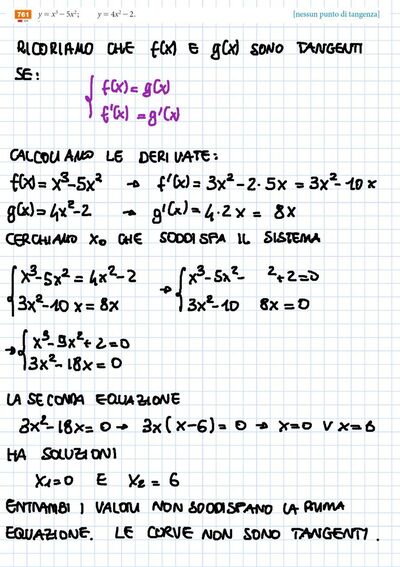 761 y = x³ − 5x²; y = 4x² − 2. [nessun punto di tangenza]
RICORDIAMO CHE f(x) E g(x) SONO TANGENTI
SE:
{ f(x) = g(x)
f'(x) = g'(x)
CALCOLIAMO LE DERIVATE:
f(x) = x³-5x² → f'(x) = 3x²-2·5x = 3x²-10x
g(x) = 4x²-2 → g'(x) = 4·2x = 8x
CERCHIAMO x₀ CHE SODDISFA IL SISTEMA
{ x³-5x² = 4x²-2 → { x³-5x²- ²+2=0
3x²-10x = 8x 3x²-10 8x = 0
→ { x³-9x²+2=0
3x²-18x = 0
LA SECONDA EQUAZIONE
3x²-18x=0 → 3x(x-6)=0 → x=0 ∨ x=6
HA SOLUZIONI
x₁=0 E x₂ = 6
ENTRAMBI I VALORI NON SODDISFANO LA PRIMA
EQUAZIONE. LE CURVE NON SONO TANGENTI.